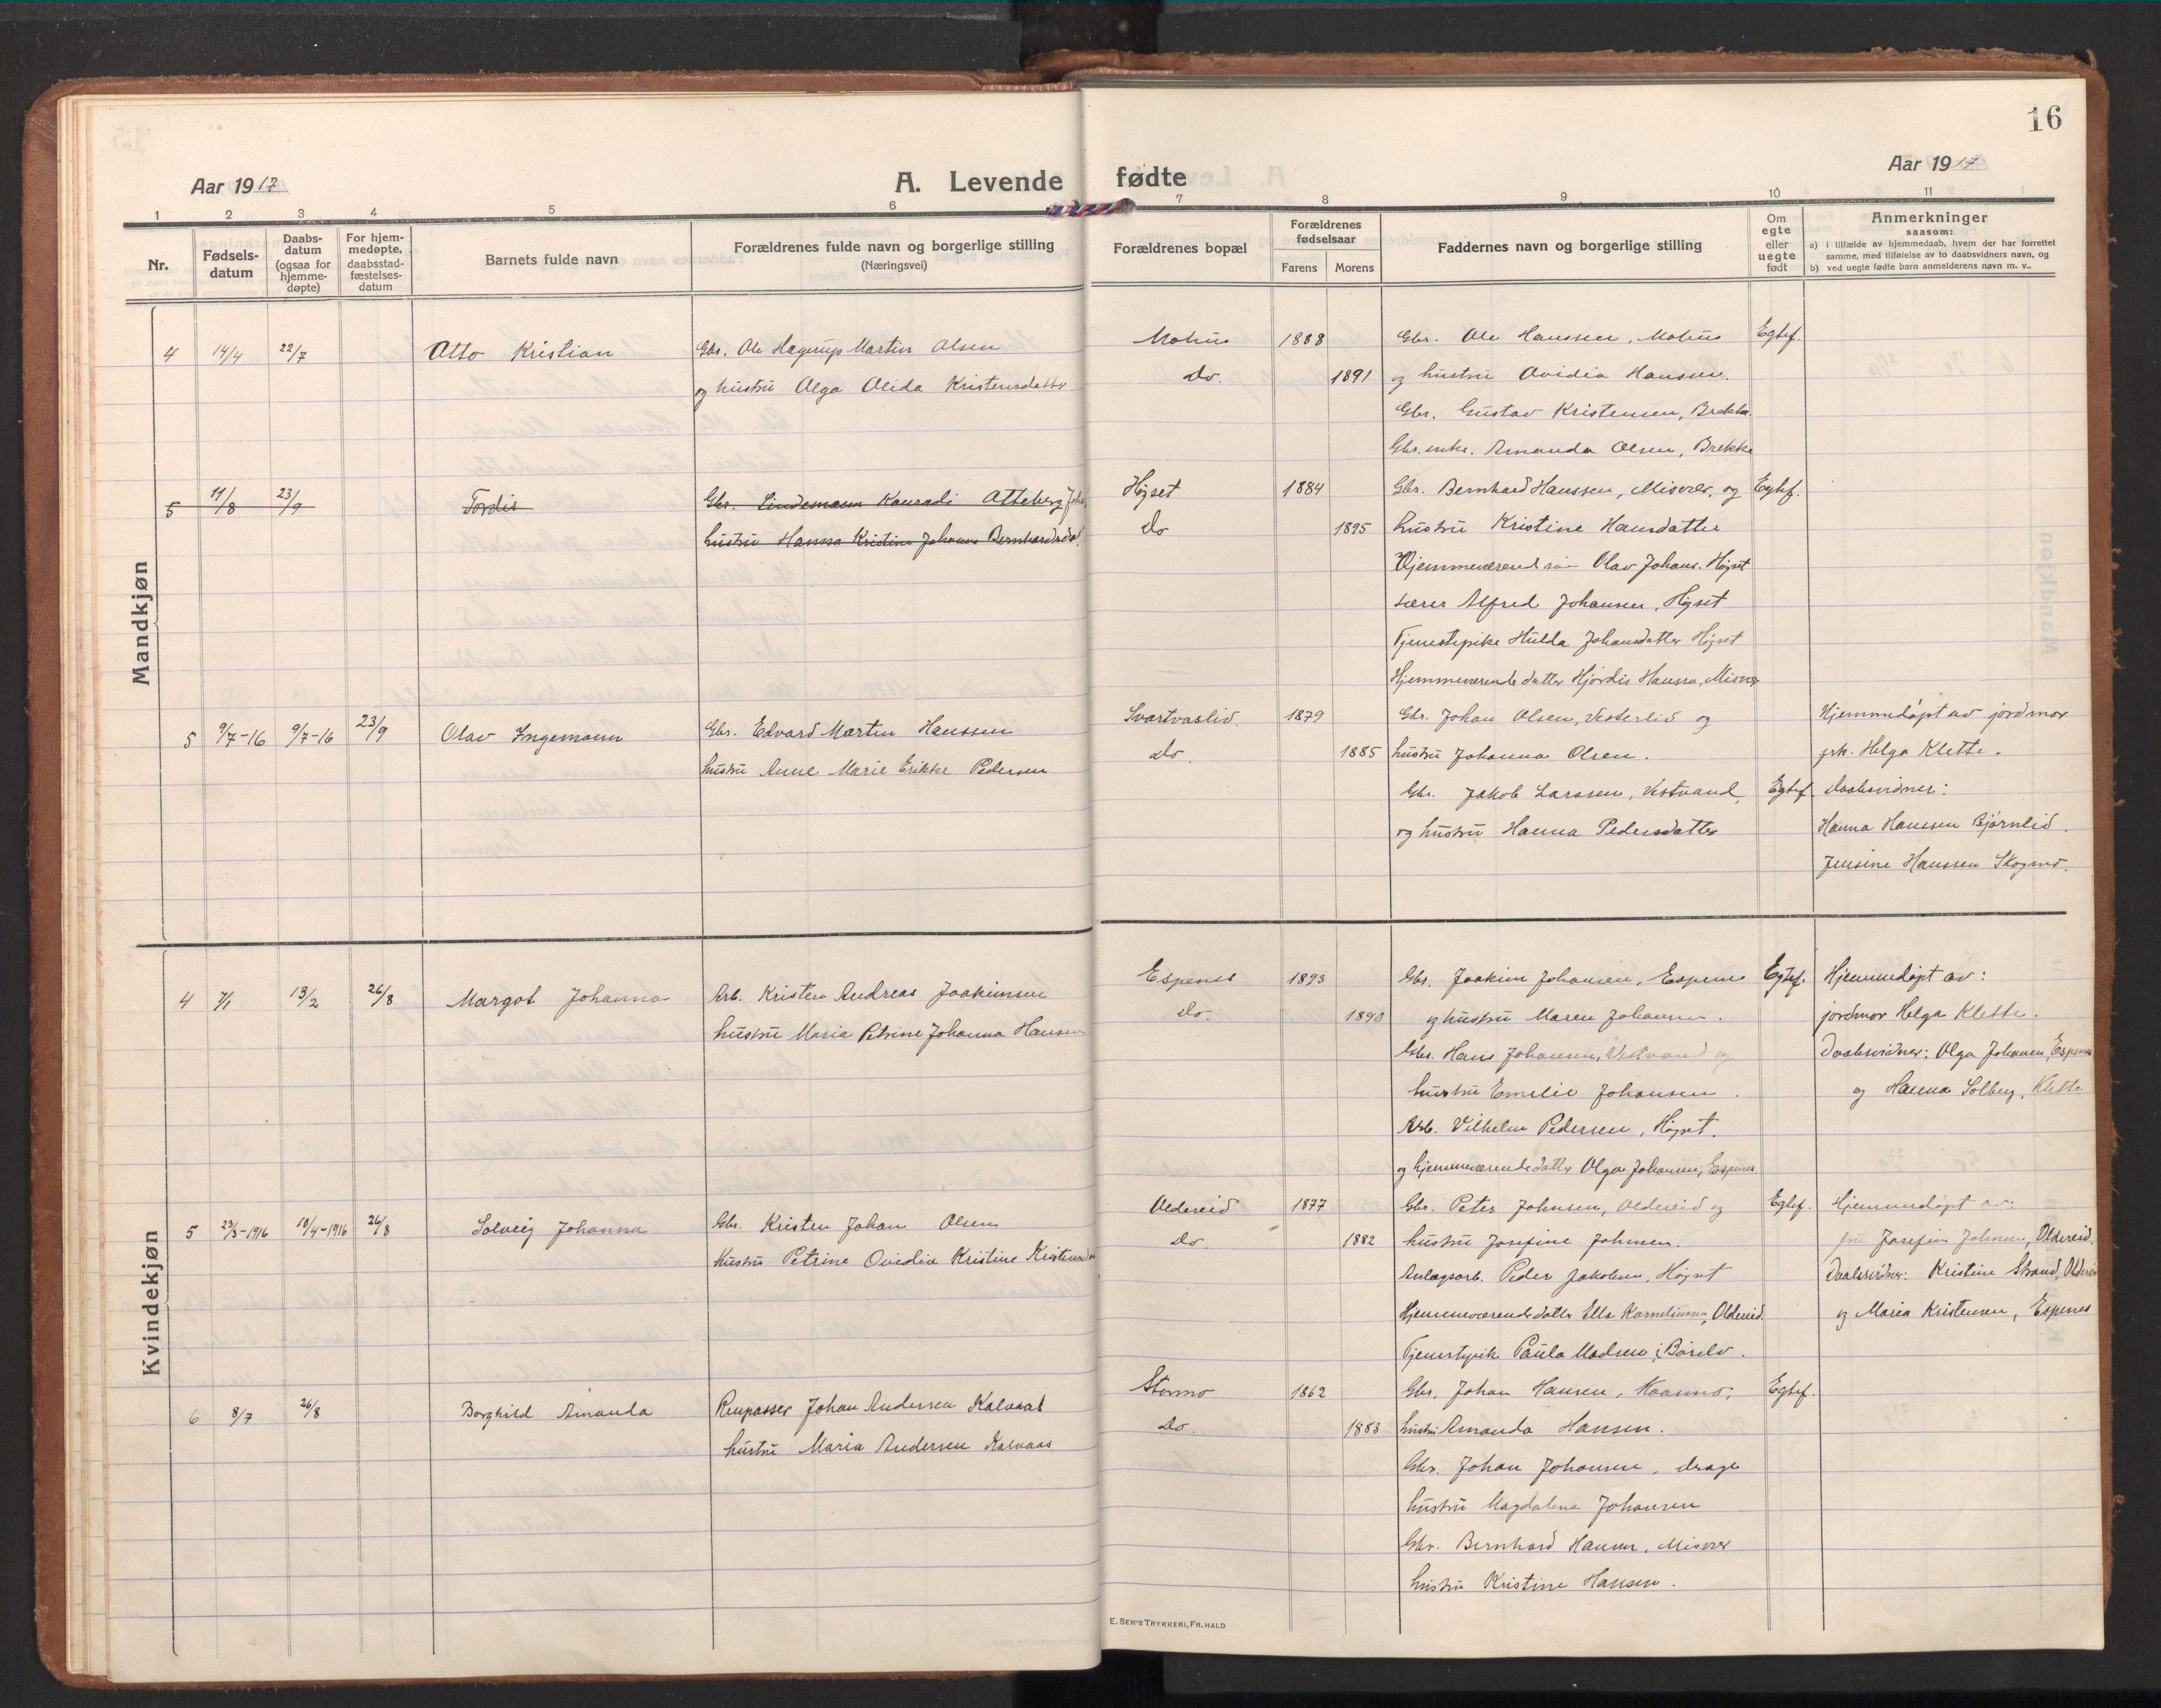 16
Aar 1917
A. Levende fødte
Aar 1917
1 2 3 4 5 6 7 8 9 10 11
Nr.
Fødsels-
datum
Daabs-
datum
(ogsaa for
hjemme-
døpte)
For hjem-
medøpte,
daabsstad-
fæstelses-
datum
Barnets fulde navn
Forældrenes fulde navn og borgerlige stilling
(Næringsvei)
Forældrenes bopæl
Forældrenes
fødselsaar
Farens Morens
Faddernes navn og borgerlige stilling
Om
egte
eller
uegte
født
Anmerkninger
saasom:
a) i tilfælde av hjemmedaab, hvem der har forrettet
samme, med tilføielse av to daabsvidners navn, og
b) ved uegte fødte barn anmelderens navn m. v..
Mandkjøn
4 14/4 22/7 Otto Kristian
Gbr. Ole Hagerup Martin Olsen
og hustru Olga Alida Kristensdatter
Mohus 1888
do. 1891
Gbr. Ole Hanssen, Mohus
og hustru Ovidia Hansen.
Gbr. Gustav Kristensen, Brekke.
Gbr.enke. Amanda Olsen, Brekke
Egtef.
5 11/8 23/9 Tordis
Gbr. Lindemann Konradi Atteberg Joh.
hustru Hanna Kristine Johanna Bernhardsdat.
Højset 1884
do 1895
Gbr. Bernhard Hanssen, Misvær, og
hustru Kristine Hansdatter
Hjemmeværend søn Olav Johans. Højset
Lærer Alfred Johansen, Højset
Tjenestepike Hulda Johansdatter Højset
Hjemmeværende datter Hjørdis Hansen, Misvær
Egtef.
5 9/7-16 9/7-16 23/9 Olav Ingemann
Gbr. Edvard Martin Hanssen
hustru Anne Marie Erikke Pedersen
Svartvaslid. 1879
do. 1885
Gbr. Johan Olsen, Vesterlid og
hustru Johanna Olsen.
Gbr. Jakob Larssen, Vestvand,
og hustru Hanna Pedersdatter
Egtef
Hjemmedøpt av jordmor
frk. Helga Klette.
Daabsvidner:
Hanna Hanssen Bjørnlid.
Jensine Hanssen Skogmo.
Kvindekjøn
4 7/1 13/2 26/8 Margot Johanna
Arb. Kristen Andreas Joakimsen
hustru Maria Petrine Johanna Hansen
Espenes 1893
do. 1890
Gbr. Joakim Johansen, Espenes
og hustru Maren Johansen.
Gbr. Hans Johansen, Vestvand og
hustru Emelie Johansen.
Arb. Vilhelm Pedersen, Højset.
og hjemmeværende datter Olga Johansen, Espenes
Egtef.
Hjemmedøpt av:
jordmor Helga Klette.
Daabsvidner: Olga Johansen, Espenes
og Hanna Solberg, Klette
5 23/3-1916 10/4-1916 26/8 Solveig Johanna
Gbr. Kristen Johan Olsen
hustru Petrine Ovidia Kristine Kristensdat
Oldereid 1877
do. 1882
Gbr. Peter Johnsen, Oldereid og
hustru Josefine Johnsen.
Anlægsarb. Peder Jakobsen, Højset
Hjemmeværende datter Ella Korneliussen, Oldereid.
Tjenestepik Paula Madsen, Børelv.
Egtef.
Hjemmedøpt av:
fru Josefine Johnsen, Oldereid.
Daabsvidner: Kristine Strand, Oldereid
og Maria Kristensen, Espenes
6 8/7 26/8 Borghild Amanda
Renpasser Johan Andersen Kalvaas
hustru Maria Andersen Kalvaas
Stormo 1862
do. 1883
Gbr. Johan Hansen, Koasmo,
hustru Amanda Hansen.
Gbr. Johan Johansen, Drage
hustru Magdalena Johansen
Gbr. Bernhard Hansen, Misvær
hustru Kristine Hansen.
Egtef.
E. SEM'S TRYKKERI, FR. HALD